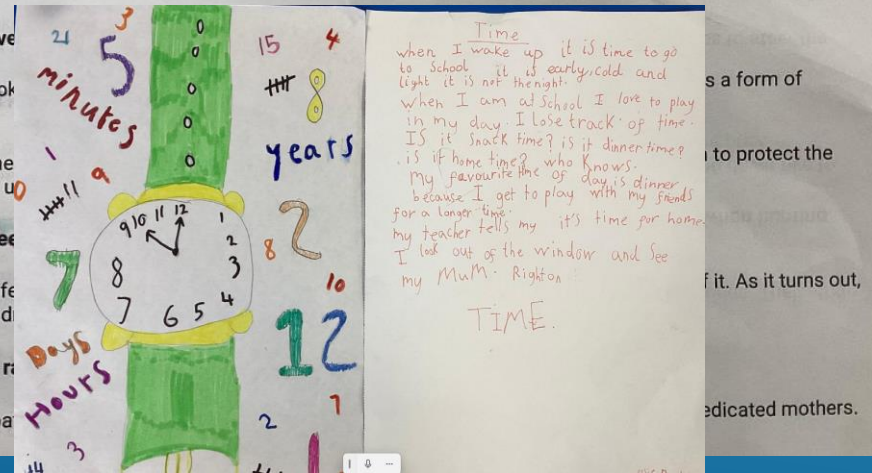 21
3
5
minutes
1
9
0
7
Days
Hours
3
14
12
1
2
3
4
5
6
7
8
9
10
11
15
4
8
years
2
8
10
12
7
2
Time
when I wake up it is time to go
to School it is early, cold and
light it is not the night.
when I am at School I love to play
in my day. I lose track of time.
IS it Snack time? is it dinner time?
is it home time? who Knows.
My favourite time of day is dinner
because I get to play with my friends
for a longer time.
my teacher tells my it's time for home.
I look out of the window and See
my MuM. Right on
TIME.
s a form of
to protect the
f it. As it turns out,
edicated mothers.